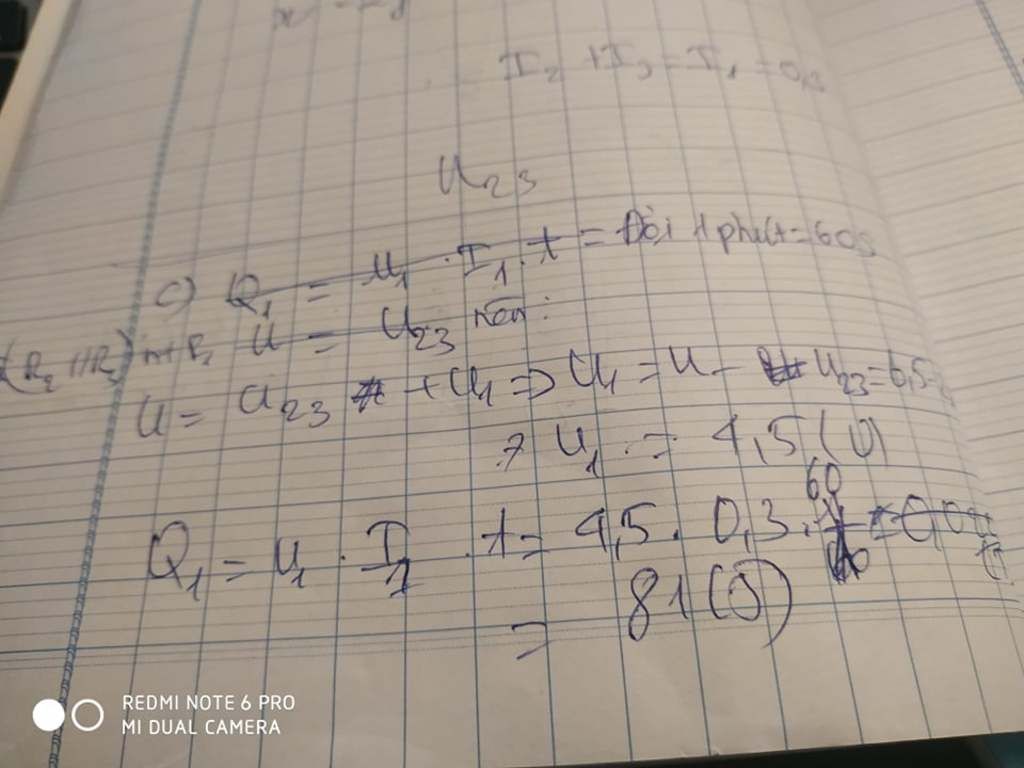 I₂ + I₃ = I₁ = 0,3
U₂₃
c) Q₁ = U₁ . I₁ . t = Đổi 1 phút = 60s
(R₂ // R₃) nt R₁ U = U₂₃ nên :
U = U₂₃ + U₁ => U₁ = U - U₂₃ = 6,5 -
=> U₁ = 4,5 (V)
60
Q₁ = U₁ . I₁ . t = 4,5 . 0,3 .
= 81 (J)
REDMI NOTE 6 PRO
MI DUAL CAMERA